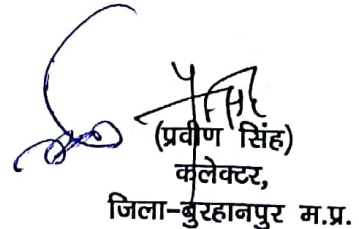 (प्रवीण सिंह)
कलेक्टर,
जिला-बुरहानपुर म.प्र.